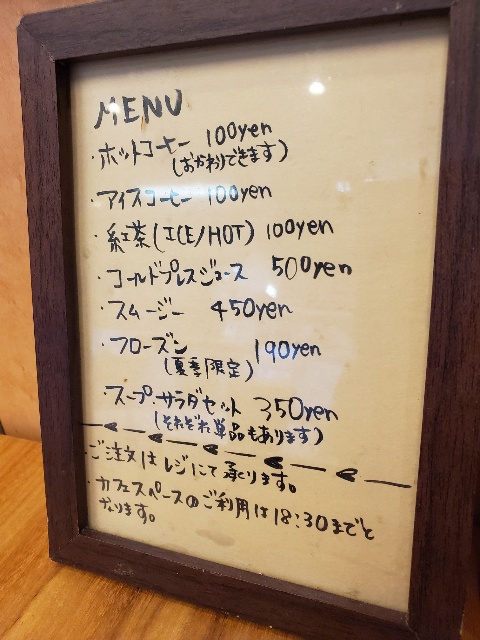 MENU
・ホットコーヒー 100yen
(おかわりできます)
・アイスコーヒー 100yen
・紅茶(ICE/HOT) 100yen
・コールドプレスジュース 500yen
・スムージー 450yen
・フローズン 190yen
(夏季限定)
・スープ・サラダセット 350yen
(それぞれ単品もあります)
・ご注文はレジにて承ります。
・カフェスペースのご利用は18:30までと
なります。